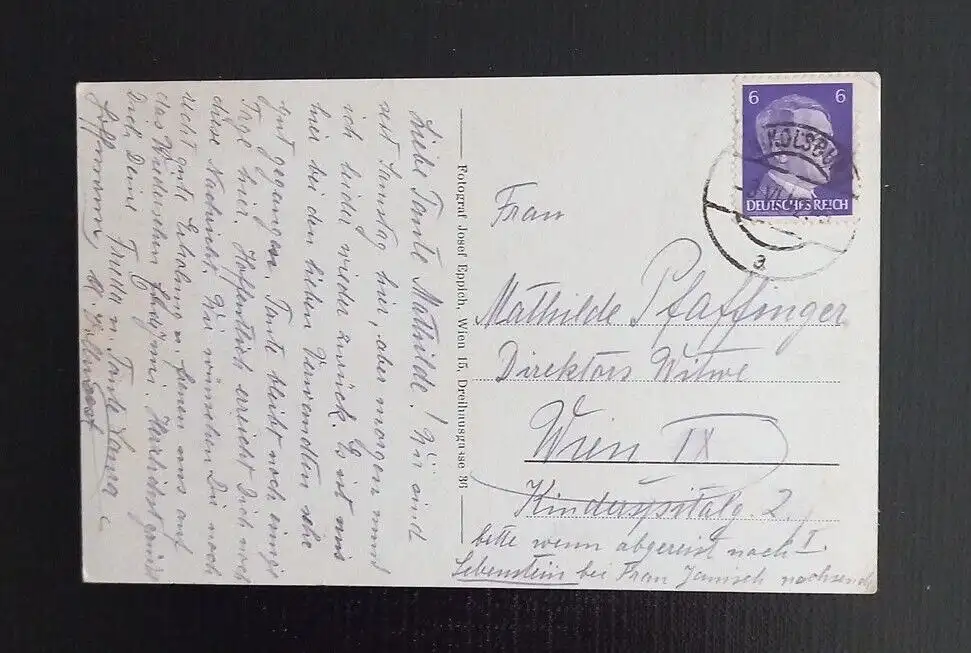 Liebe Tante Mathilde! Wir sind
seit Samstag hier, aber morgen muss
ich leider wieder zurück. Es ist uns
hier bei den lieben Verwandten sehr
gut gegangen. Tante bleibt noch einige
Tage hier. Hoffentlich erreicht Dich noch
diese Nachricht. Wir wünschen Dir noch
recht gute Erholung u. freuen uns auf
das Wiedersehen. Herzlichst grüßt
Dich Deine Trude u. Tante
Fotograf Josef Eppich, Wien 15, Dreihausgasse 36
6 6
DEUTSCHES REICH
a
Frau
Mathilde Pfaffinger
Direktors Witwe
Wien IX
Kinderspitalg. 2.
bitte wenn abgereist nach I.
Sebenstein bei Frau Janisch nachsenden